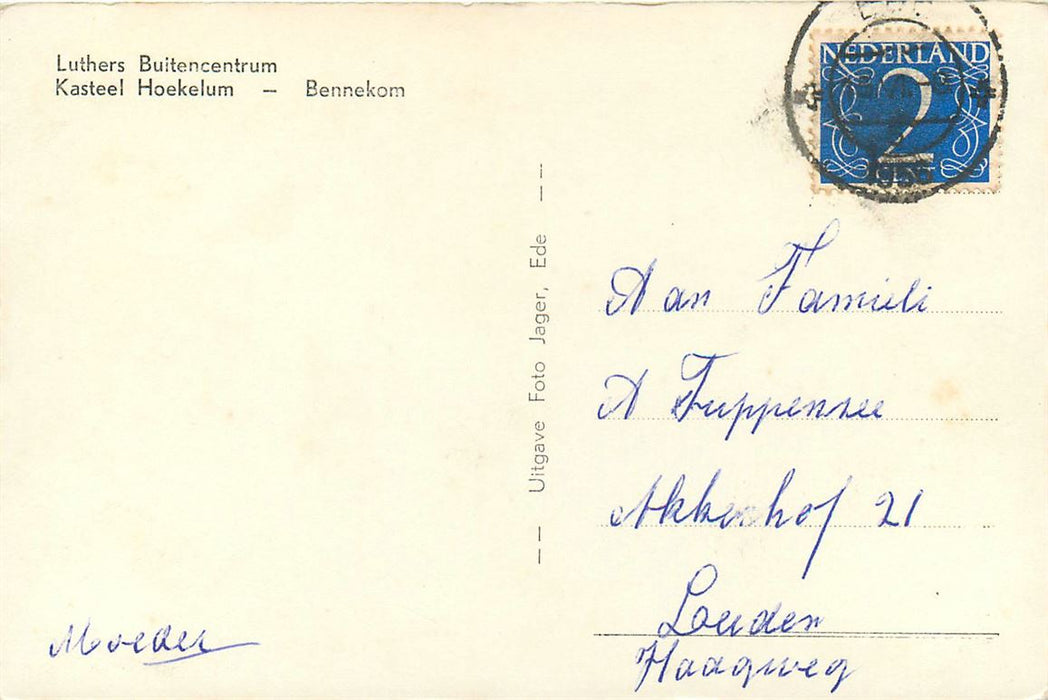 Luthers Buitencentrum
Kasteel Hoekelum — Bennekom
NEDERLAND
2
1956
-- Uitgave Foto Jager, Ede --
Aan Familie
A Tuppensee
Akkerhof 21
Leiden
Haagweg
Moeder